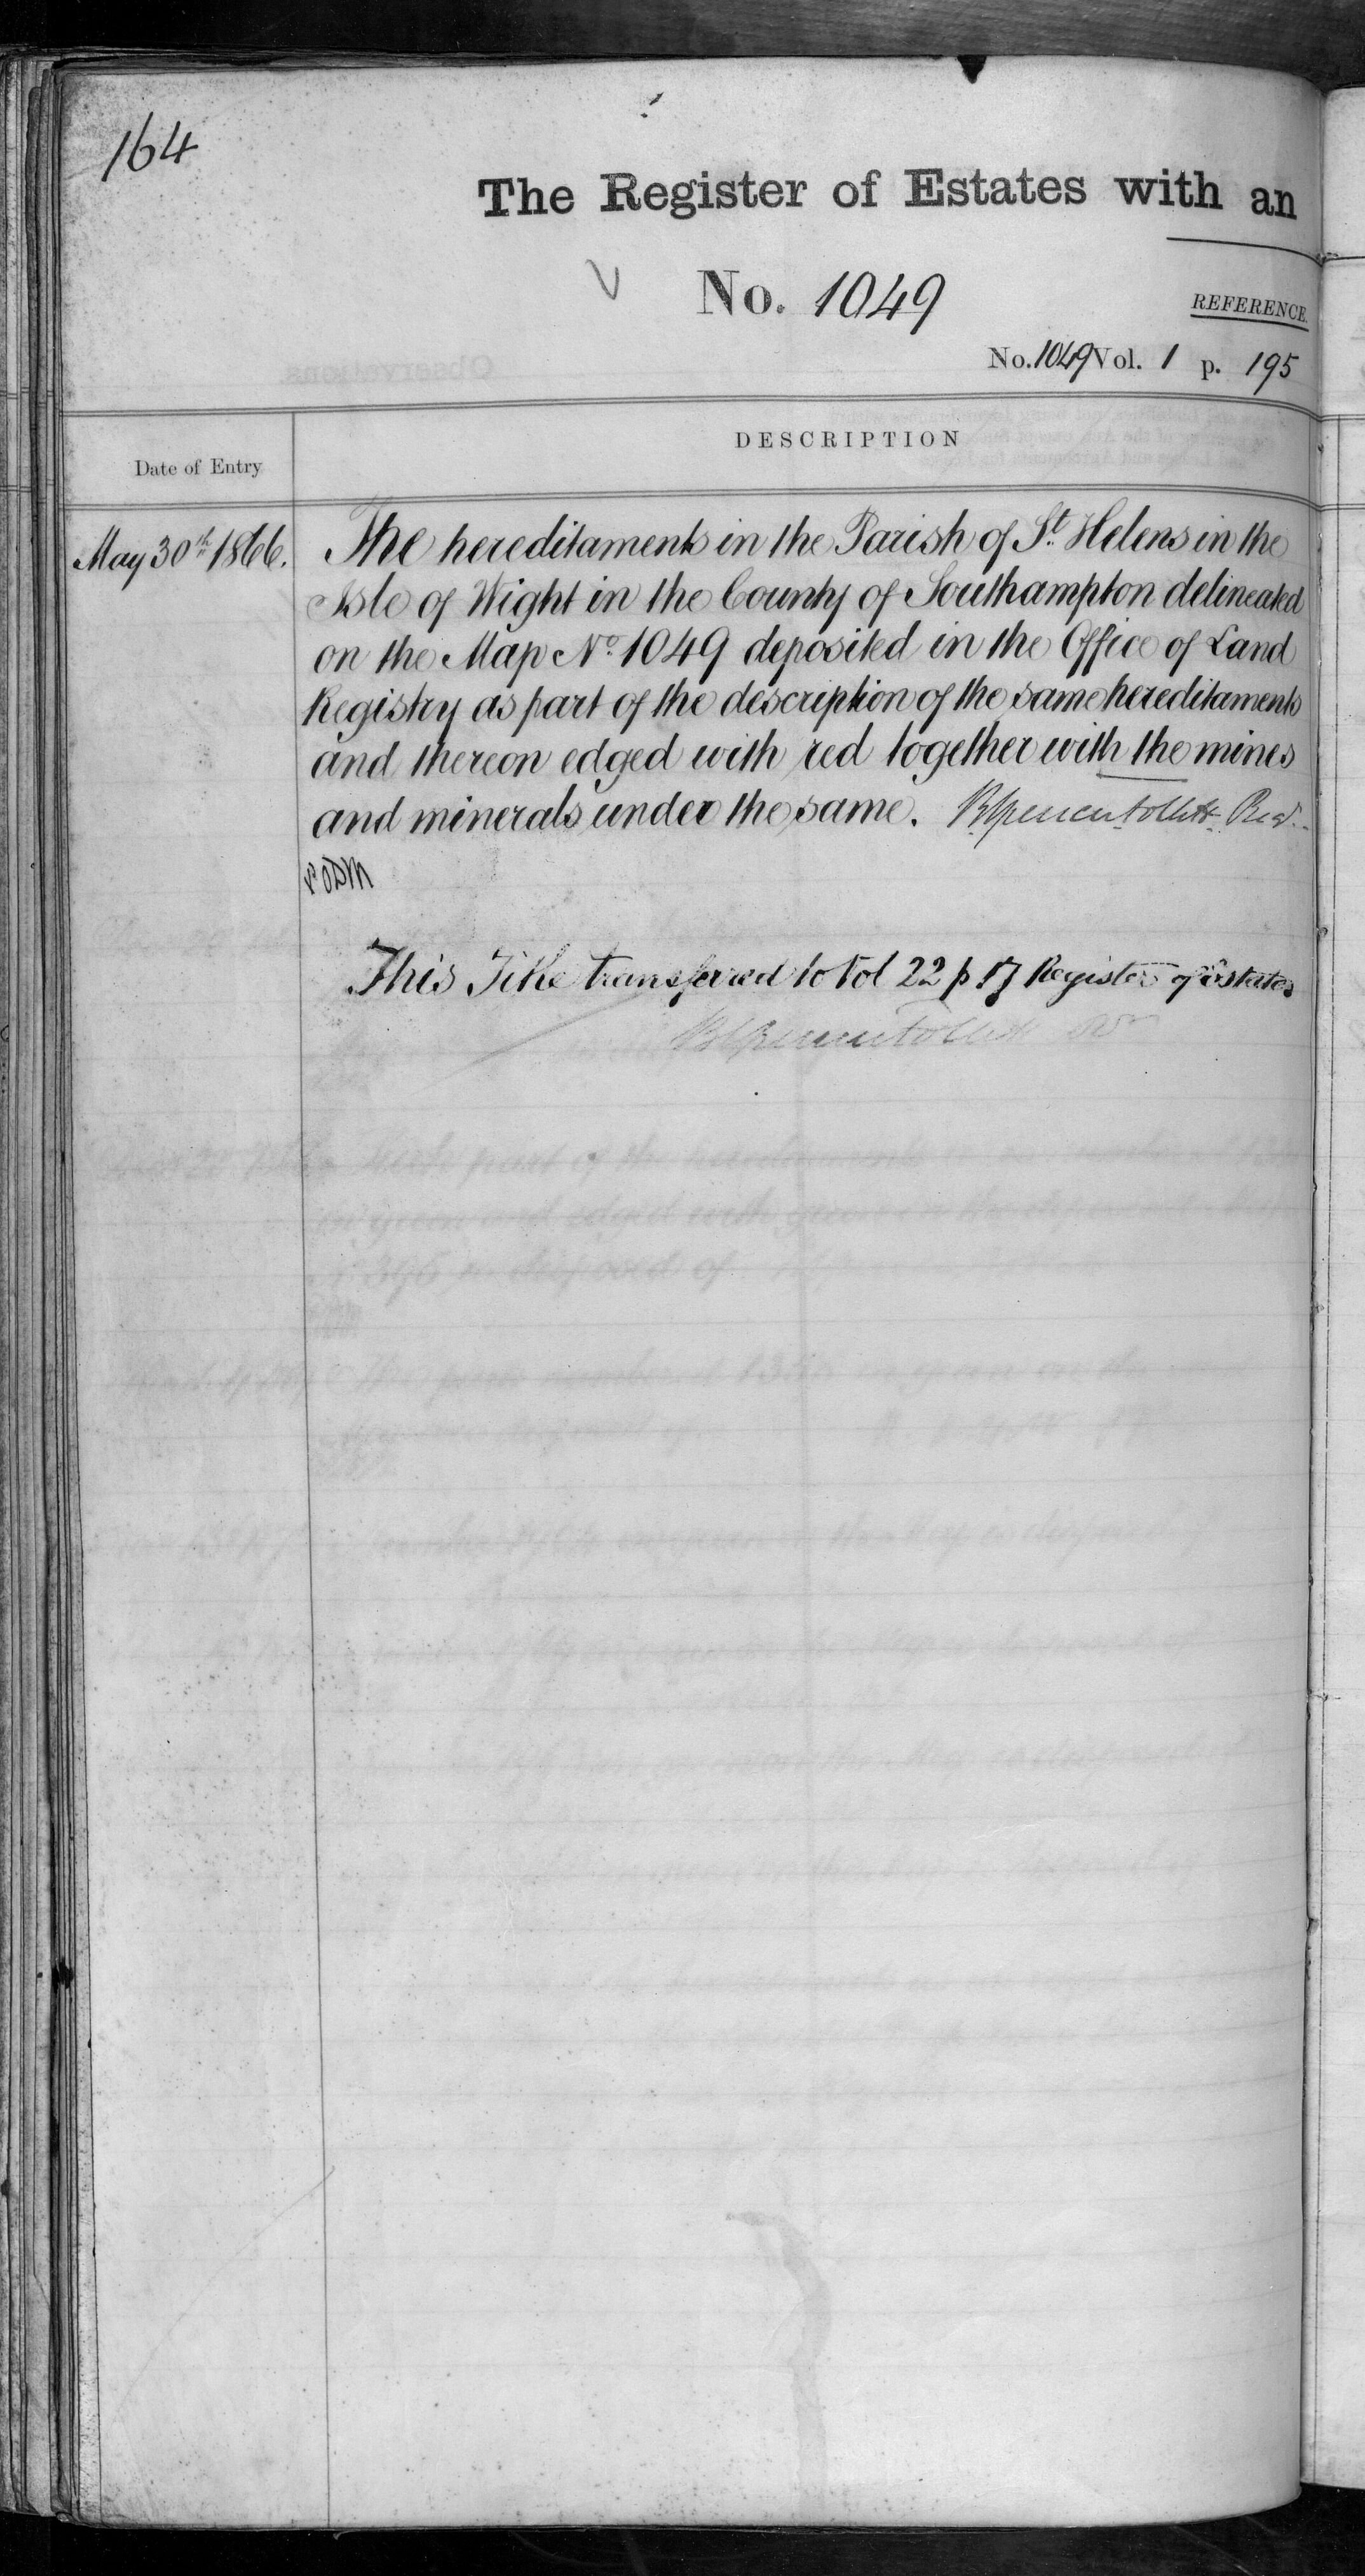 164
The Register of Estates with an
No. 1049
REFERENCE.
No. 1049 Vol. 1 p. 195
Date of Entry
DESCRIPTION
May 30th 1866.
The hereditaments in the Parish of St. Helens in the
Isle of Wight in the County of Southampton delineated
on the Map No. 1049 deposited in the Office of Land
Registry as part of the description of the same hereditaments
and thereon edged with red together with the mines
and minerals under the same.
This Title transferred to Vol 22 p 17 Register of Estates